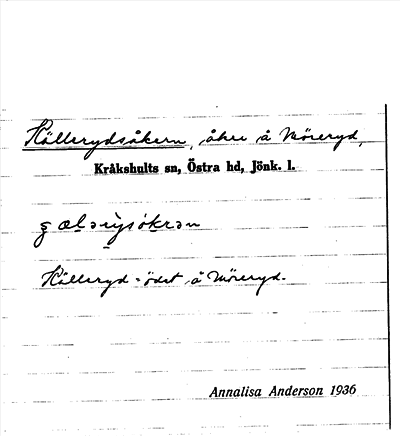 Hällerydsåkern, åker å Möreryd,
Kråkshults sn, Östra hd, Jönk. l.
Hälleryd = ödet å Möreryd.
Annalisa Anderson 1936